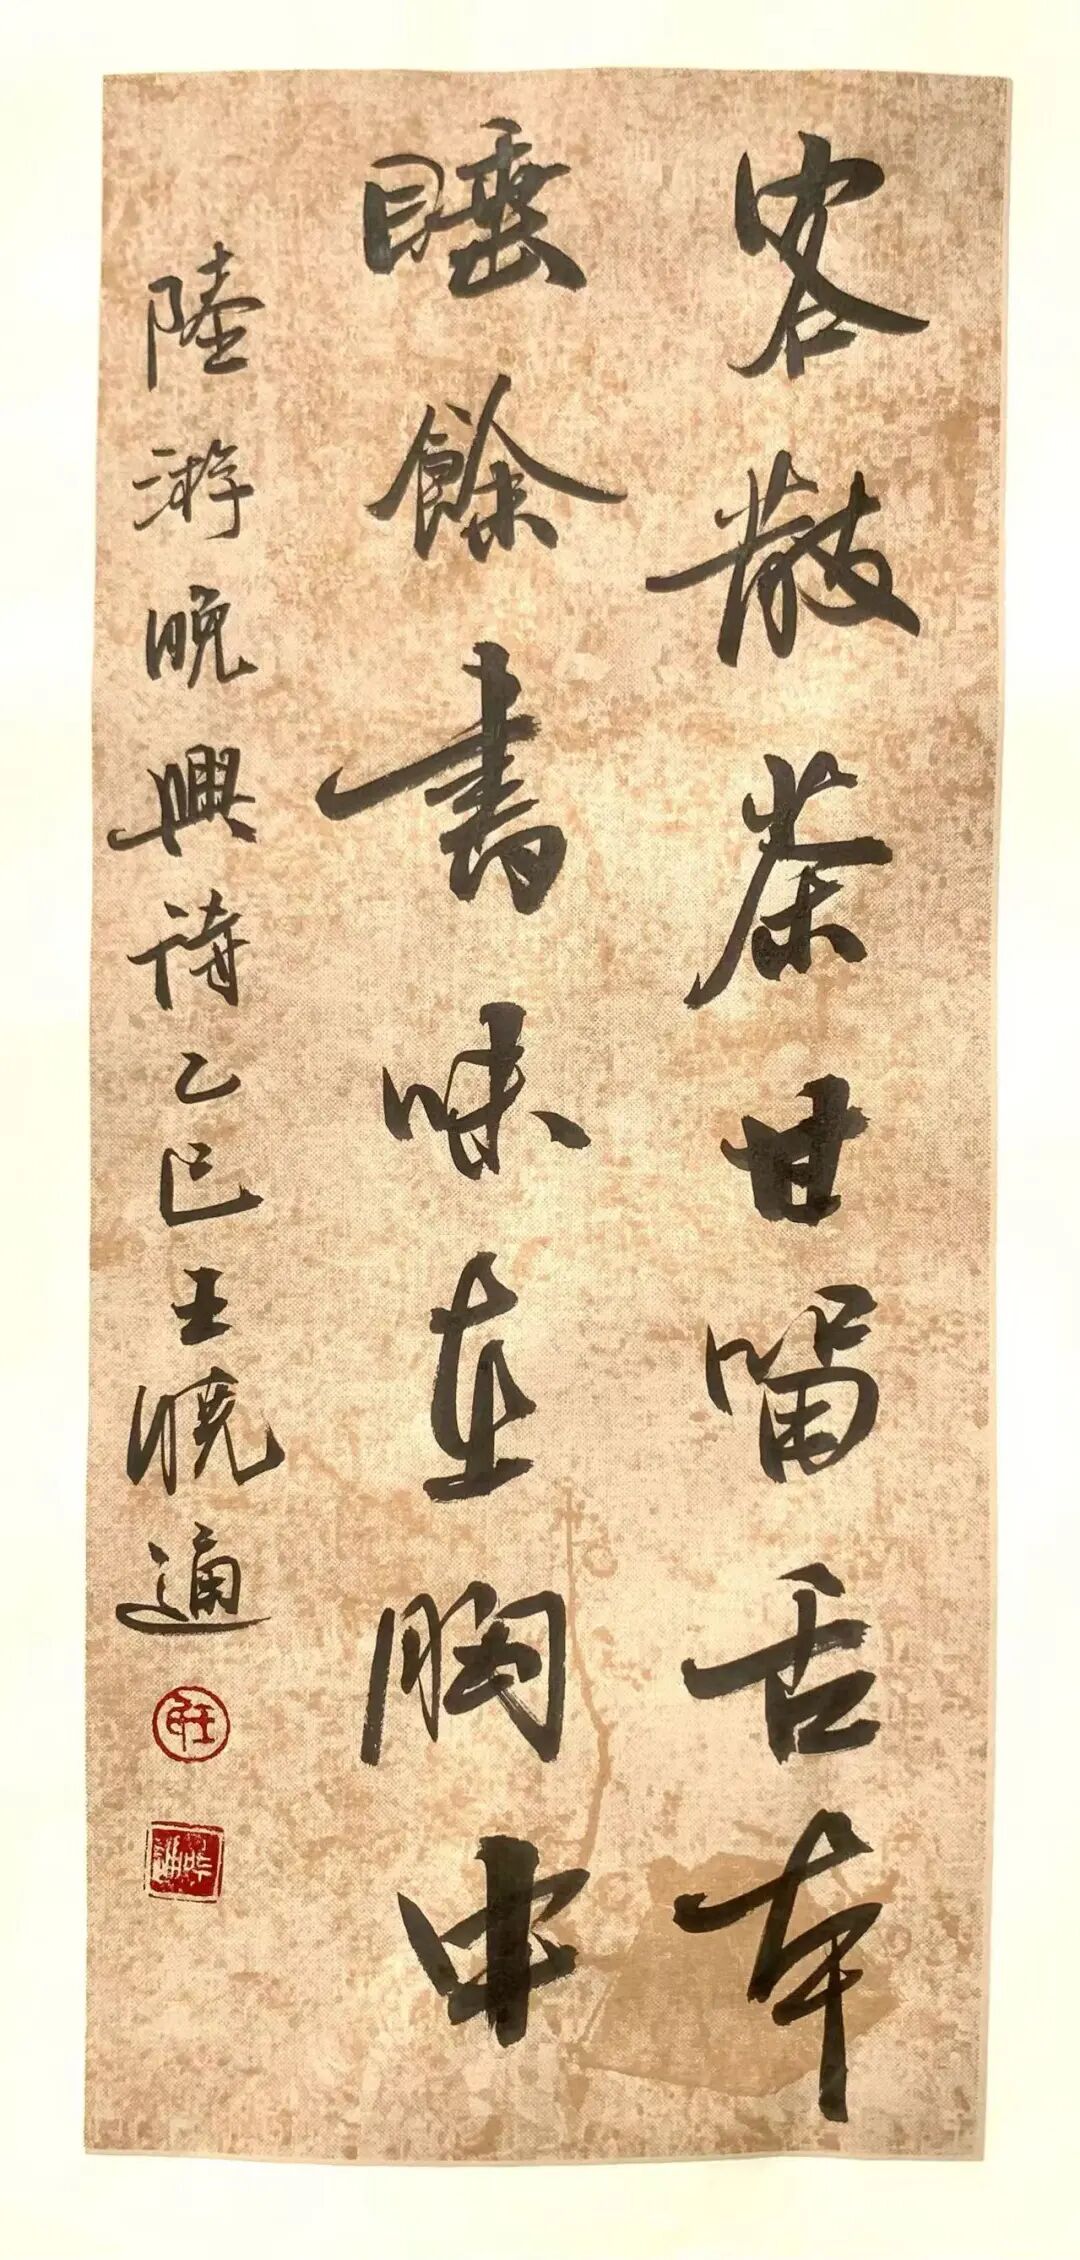 客散茶甘留舌本
睡餘書味在胸中
陸游晚興詩乙巳王曉通